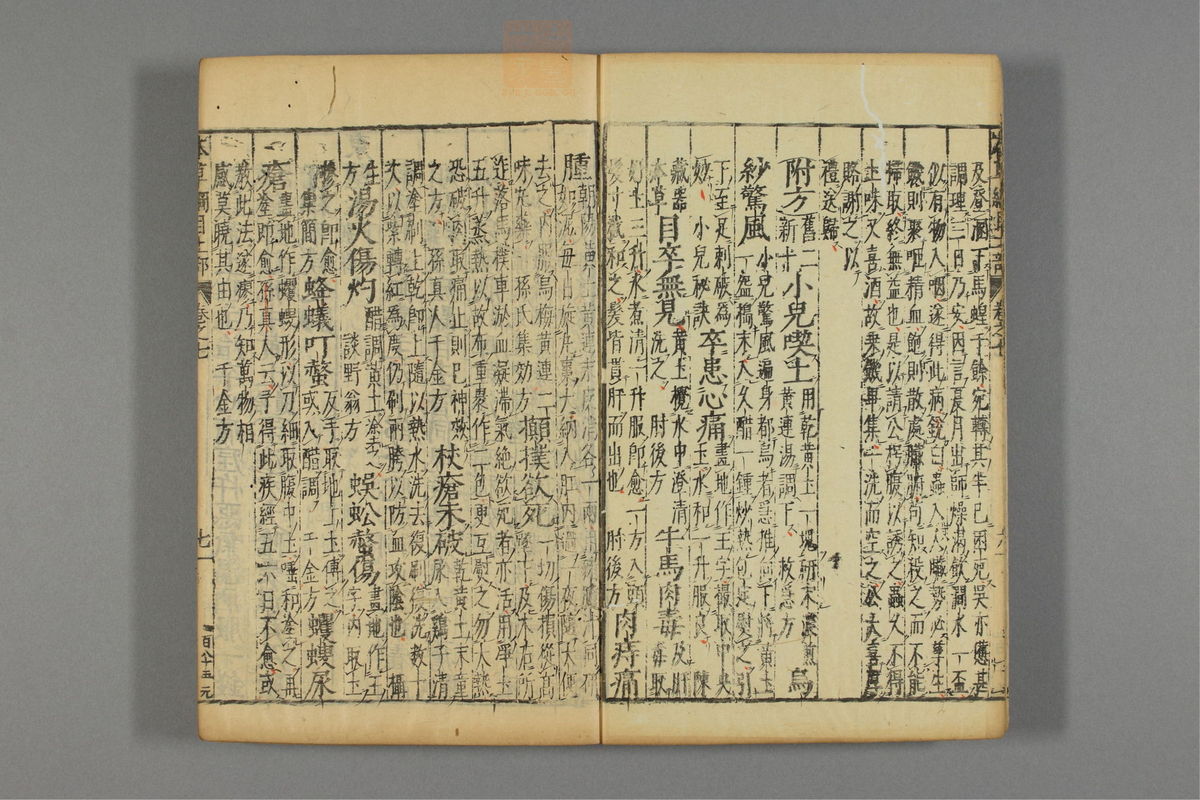 下馬蝗千餘宛轉其半已困死吳亦憊甚
調理三日乃安因言夏月出師燥渴飲澗水一盃
似有物入咽遂得此病張曰蟲入人臟勢必孳生
饑則聚咂精血飽則散處臟腑苟知殺之而不能
掃取終無益也是以請公枵腹以誘之蟲久不得
土味又喜酒故乘饑畢集一洗而空之公大喜厚
賂謝之以
禮送歸
附方舊二新十小兒喫土用乾黃土一塊研末濃煎黃連湯調下救急方烏
紗驚風小兒驚風遍身都烏者急推向下將黃土一盌搗末入久醋一鍾炒熱包定熨之引
下至足刺破為妙小兒秘訣卒患心痛畫地作王字撮取中央土水和一升服良陳
藏器本草目卒無見黃土攪水中澄清洗之肘後方牛馬肉毒及肝毒取
好土三升水煮清一升服即愈一方入頭
髮寸截和之髮皆貫肝而出也肘後方肉痔痛
腫朝陽黃土黃連末皮消各一兩用豬膽汁同研
如泥每日旋丸棗大納入肛內過一夜隨大便
去之內服烏梅黃連二味丸藥孫氏集効方攧撲欲死一切傷損從高墜下及木石所
迮落馬撲車淤血凝滯氣絕欲死者亦活用淨土
五升蒸熱以故布重裹作二包更互熨之勿大熱
恐破肉取痛止則已神效之方孫真人千金方杖瘡未破乾黃土末童尿入鷄子清
調塗刷上乾即上隨以熱水洗去復刷復洗數十
次以紫轉紅為度仍刷兩胯以防血攻陰也攝
生方湯火傷灼醋調黃土塗之談野翁方蜈蚣螫傷畫地作王字內取土
摻之即愈集簡方蜂蟻叮螫反手取地上土傅之或入醋調千金方蠼螋尿
瘡畫地作蠼螋形以刀細取腹中土唾和塗之再塗即愈孫真人云予得此疾經五六日不愈或
教此法遂瘳乃知萬物相
感莫曉其由也千金方
本草綱目土部 卷之七 七一 百八十五元